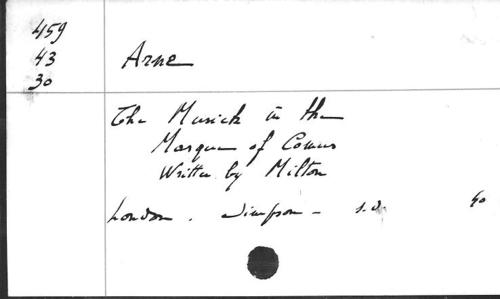 459
43
30
Arne
The Musick in the
Masque of Comus
Written by Milton
London . Simpson - s.d. 40